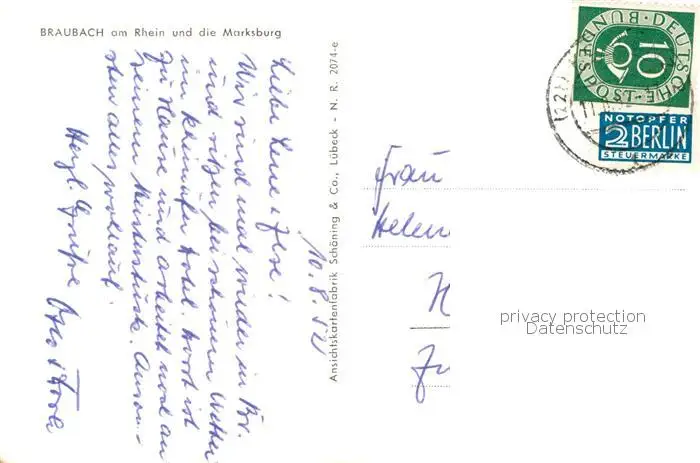 BRAUBACH am Rhein und die Marksburg
10.8.52
Liebe Lene + Ilse!
Wir sind mal wieder in Br.
und sitzen bei schönem Wetter
im Rheinufer Hotel. Horst ist
zu Hause und arbeitet noch an
seinem Meisterstück. Anson-
sten alles wohlauf.
Herzl. Grüße
Ansichtskartenfabrik Schöning & Co., Lübeck - N. R. 2074-e
DEUTSCHE BUNDESPOST
10
NOTOPFER
2 BERLIN
STEUERMARKE
Frau
Helen
privacy protection
Datenschutz